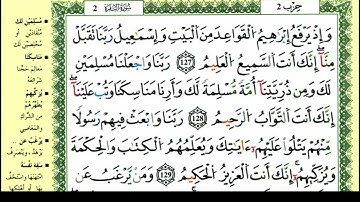 حزب 2
سورة البقرة 2
وَإِذْ يَرْفَعُ إِبْرَٰهِيمُ الْقَوَاعِدَ مِنَ الْبَيْتِ وَإِسْمَٰعِيلُ رَبَّنَا تَقَبَّلْ
مِنَّآ إِنَّكَ أَنتَ السَّمِيعُ الْعَلِيمُ 127 رَبَّنَا وَاجْعَلْنَا مُسْلِمَيْنِ
لَكَ وَمِن ذُرِّيَّتِنَآ أُمَّةً مُّسْلِمَةً لَّكَ وَأَرِنَا مَنَاسِكَنَا وَتُبْ عَلَيْنَآ
إِنَّكَ أَنتَ التَّوَّابُ الرَّحِيمُ 128 رَبَّنَا وَابْعَثْ فِيهِمْ رَسُولًا
مِّنْهُمْ يَتْلُوا۟ عَلَيْهِمْ ءَايَٰتِكَ وَيُعَلِّمُهُمُ الْكِتَٰبَ وَالْحِكْمَةَ
وَيُزَكِّيهِمْ إِنَّكَ أَنتَ الْعَزِيزُ الْحَكِيمُ 129 وَمَن يَرْغَبُ عَن
مُسْلِمَيْنِ لَكَ
مَنَاسِكَنَا
يُزَكِّيهِمْ
يُطَهِّرُهُمْ
مِنَ الشِّرْكِ
وَالْمَعَاصِي
يَرْغَبُ عَنْ
سَفِهَ نَفْسَهُ